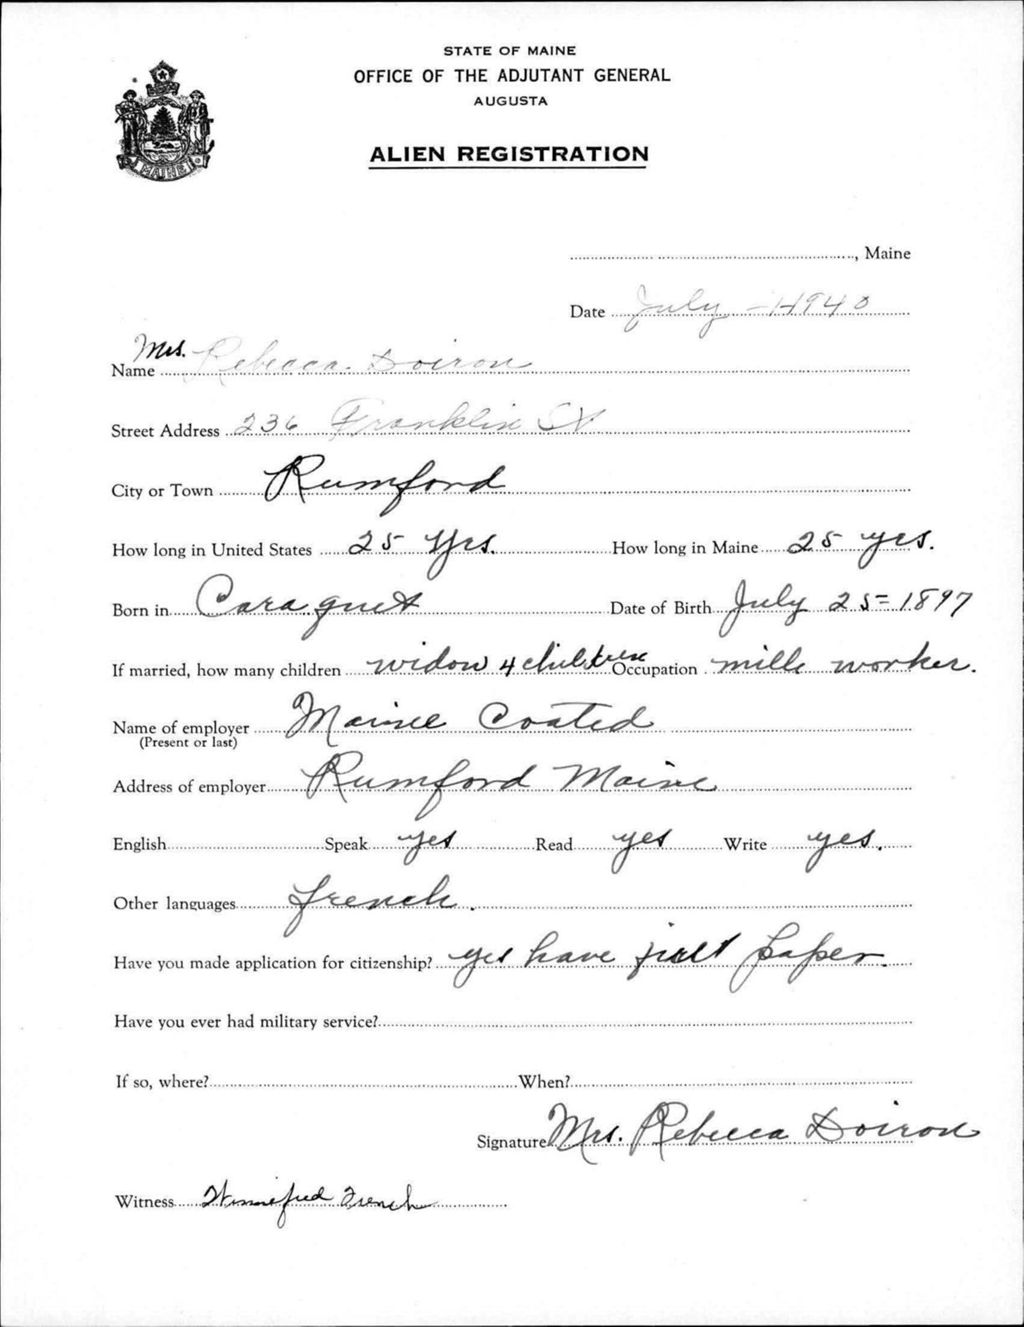 STATE OF MAINE
OFFICE OF THE ADJUTANT GENERAL
AUGUSTA
ALIEN REGISTRATION
MAINE
, Maine
Date July - 1-1940
Mrs.
Name Rebecca Doiron
Street Address 236 Franklin St
City or Town Rumford
How long in United States 25 Yrs. How long in Maine 25 yrs.
Born in Caraquet Date of Birth July 25 = 1897
If married, how many children widow 4 children Occupation mill worker.
Name of employer Maine Coated
(Present or last)
Address of employer Rumford Maine
English Speak yes Read yes Write yes.
Other languages french.
Have you made application for citizenship? yes have first paper.
Have you ever had military service?
If so, where? When?
Signature Mrs. Rebecca Doiron
Witness Winnefred French